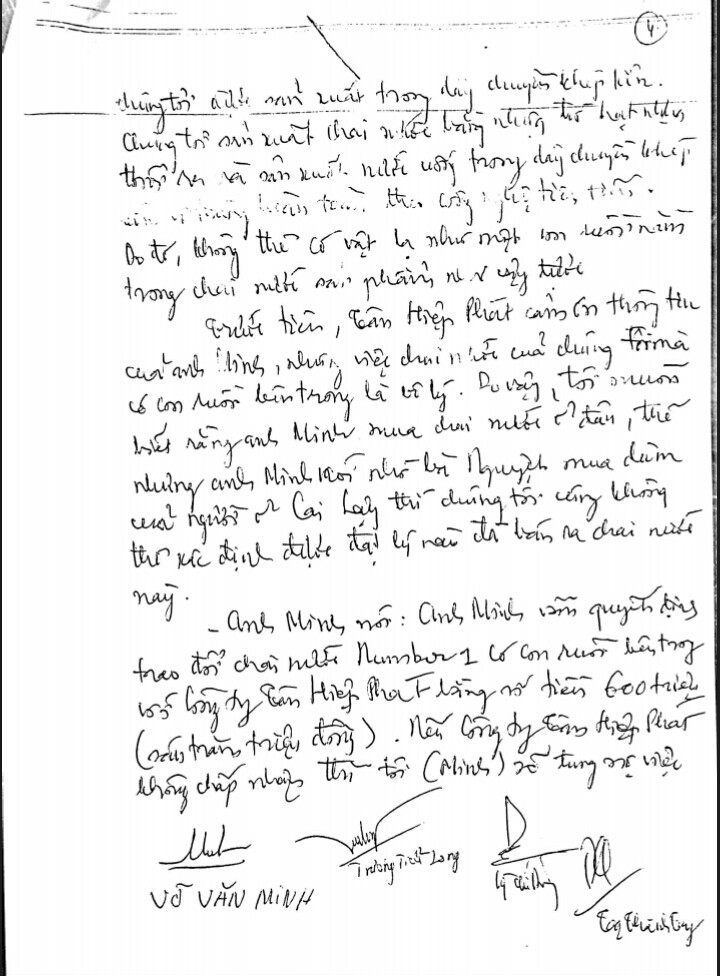 4
chúng tôi được sản xuất trong dây chuyền khép kín.
Chúng tôi sản xuất chai nước bằng những hạt nhựa
thổi ra và sản xuất nước uống trong dây chuyền khép
hoàn toàn theo công nghệ tiên tiến.
Do đó, không thể có vật lạ như một con ruồi nằm
trong chai nước sản phẩm như vậy được
Trước tiên, Tân Hiệp Phát cảm ơn thông tin
của anh Minh, nhưng việc chai nước của chúng tôi mà
có con ruồi bên trong là vô lý. Do vậy, tôi muốn
biết rằng anh Minh mua chai nước ở đâu, thế
nhưng anh Minh nói nhờ bà Nguyệt mua dùm
của người ở Cai Lậy thì chúng tôi cũng không
thể xác định được đại lý nào đã bán ra chai nước
này.
- Anh Minh nói: Anh Minh vẫn quyết định
trao đổi chai nước Number 1 có con ruồi bên trong
với Công ty Tân Hiệp Phát bằng số tiền 600 triệu
(sáu trăm triệu đồng). Nếu Công ty Tân Hiệp Phát
không chấp nhận thì tôi (Minh) sẽ tung sự việc
VÕ VĂN MINH
Trương Tiến Long